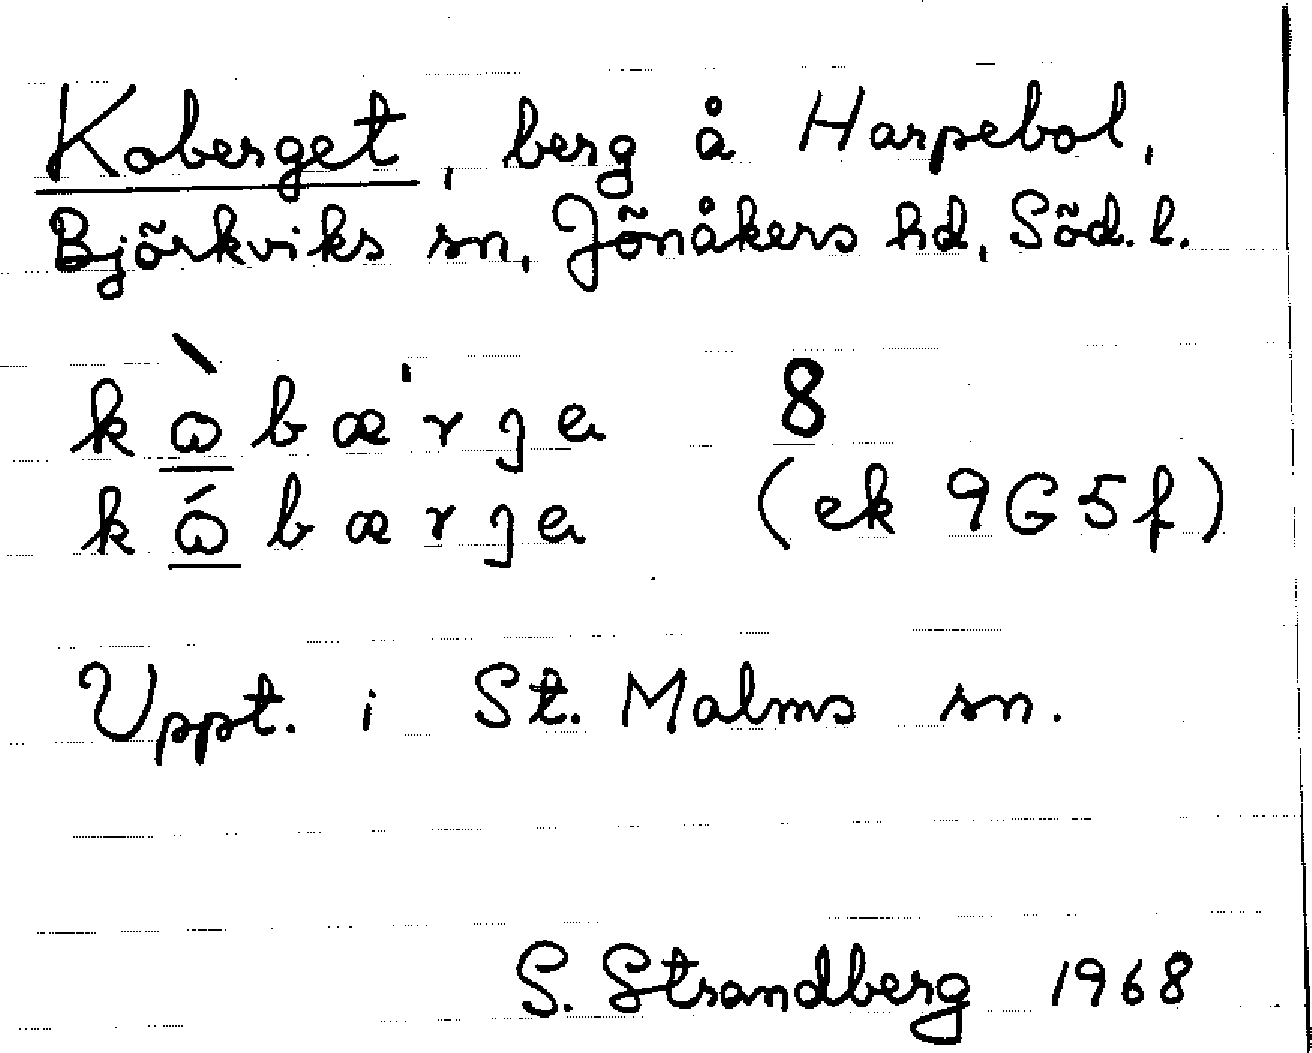 Koberget, berg å Harpebol,
Björkviks sn, Jönåkers hd, Söd. l.
kὼbæ'rɟe 8
kώbærɟe (ek 9G5f)
Uppt. i St. Malms sn.
S. Strandberg 1968